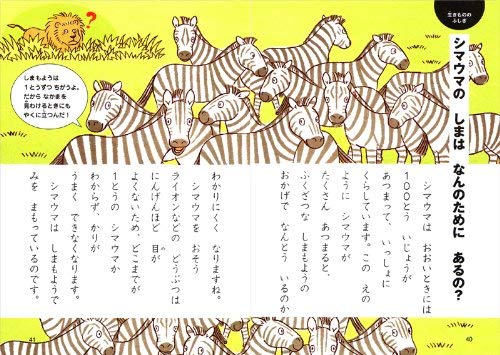 生きものの
ふしぎ
シマウマの しまは なんのために あるの?
シマウマは おおいときには
100とう いじょうが
あつまって、いっしょに
くらしています。この えの
ように シマウマが
たくさん あつまると、
ふくざつな しまもようの
おかげで なんとう いるのか
40
?
しまもようは
1とうずつ ちがうよ。
だから なかまを
見わけるときにも
やくに立つんだ!
わかりにくく なりますね。
シマウマを おそう
ライオンなどの どうぶつは
にんげんほど 目が
よくないため、どこまでが
1とうの シマウマか
わからず、かりが
うまく できなくなります。
シマウマは しまもようで
みを まもっているのです。
41